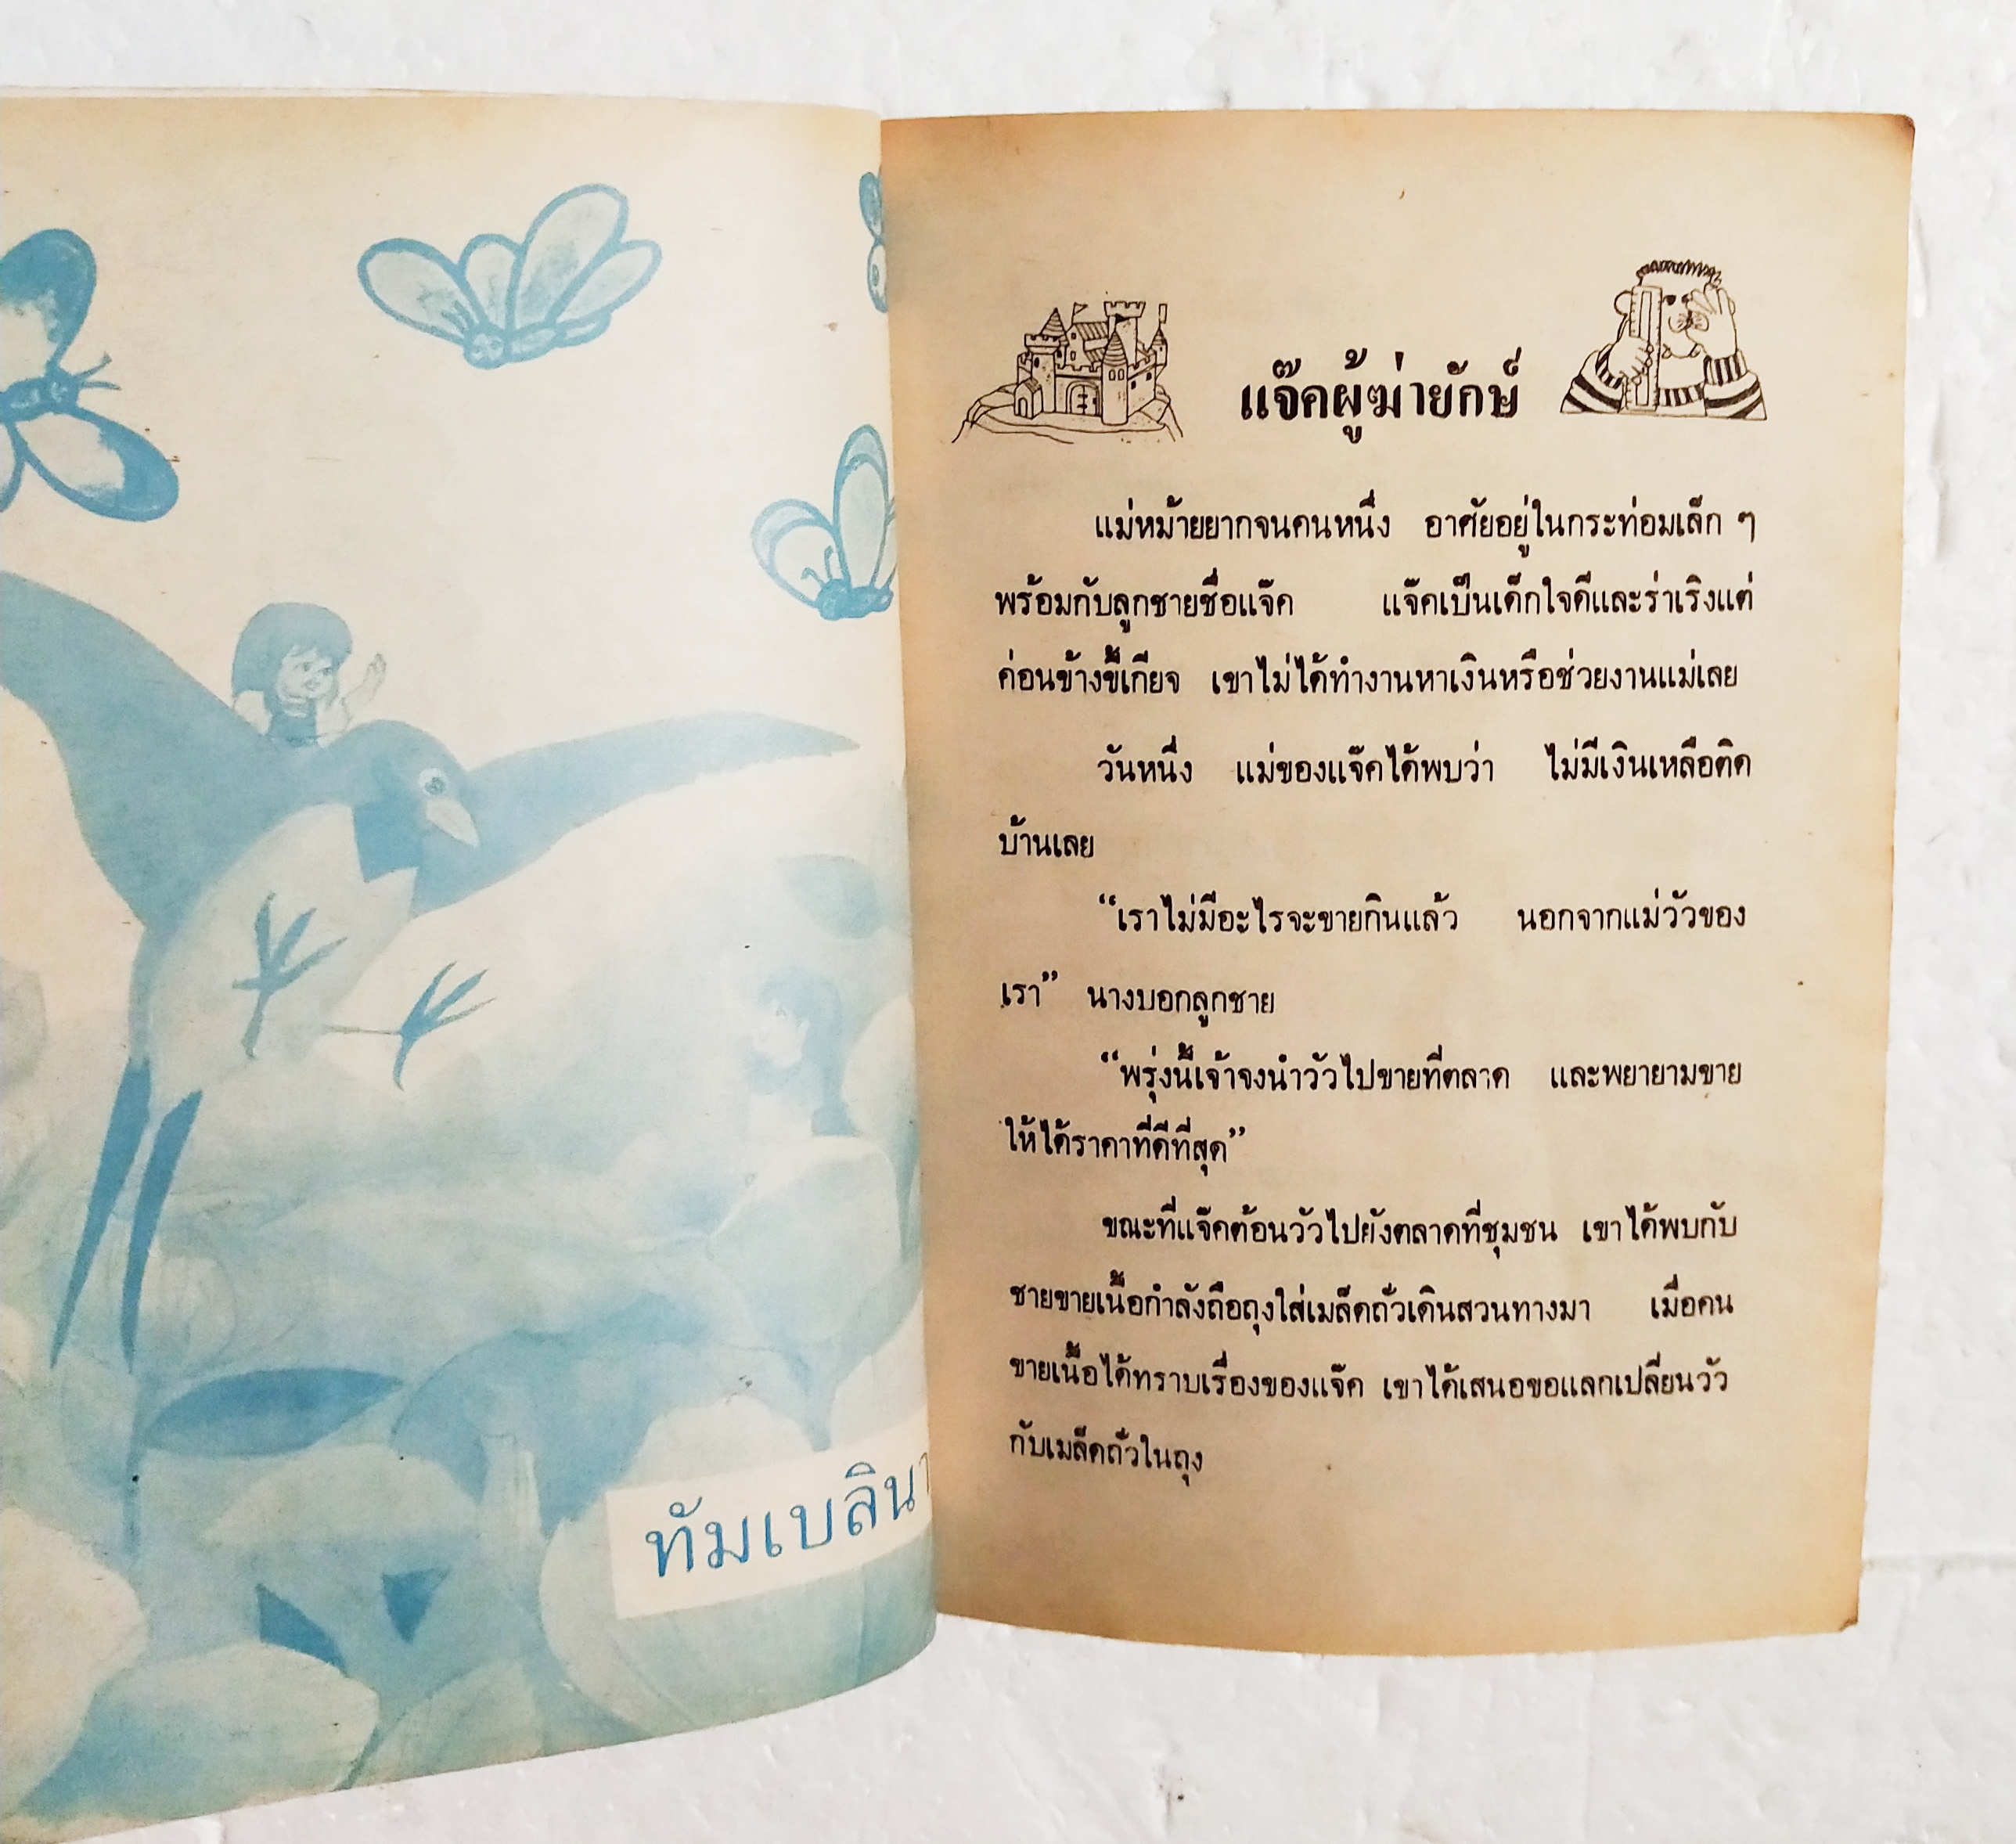 ทัมเบลินา
แจ๊คผู้ฆ่ายักษ์
แม่หม้ายยากจนคนหนึ่ง อาศัยอยู่ในกระท่อมเล็ก ๆ
พร้อมกับลูกชายชื่อแจ๊ค แจ๊คเป็นเด็กใจดีและร่าเริงแต่
ค่อนข้างขี้เกียจ เขาไม่ได้ทำงานหาเงินหรือช่วยงานแม่เลย
วันหนึ่ง แม่ของแจ๊คได้พบว่า ไม่มีเงินเหลือติด
บ้านเลย
“เราไม่มีอะไรจะขายกินแล้ว นอกจากแม่วัวของ
เรา” นางบอกลูกชาย
“พรุ่งนี้เจ้าจงนำวัวไปขายที่ตลาด และพยายามขาย
ให้ได้ราคาที่ดีที่สุด”
ขณะที่แจ๊คต้อนวัวไปยังตลาดที่ชุมชน เขาได้พบกับ
ชายขายเนื้อกำลังถือถุงใส่เมล็ดถั่วเดินสวนทางมา เมื่อคน
ขายเนื้อได้ทราบเรื่องของแจ๊ค เขาได้เสนอขอแลกเปลี่ยนวัว
กับเมล็ดถั่วในถุง